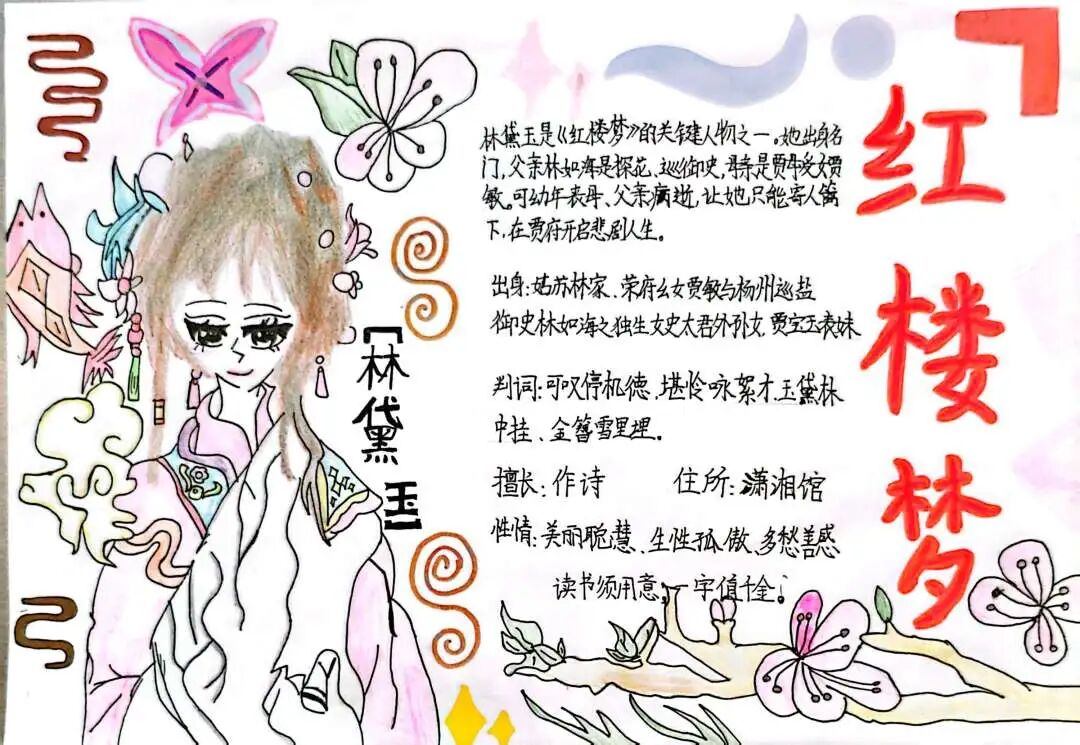 红楼梦
林黛玉是《红楼梦》的关键人物之一。她出身名
门，父亲林如海是探花、巡御史，母亲是贾母爱女贾
敏。可幼年丧母、父亲病逝，让她只能寄人篱
下，在贾府开启悲剧人生。
出身：姑苏林家、荣府幺女贾敏与杨州巡盐
御史林如海之独生女史太君外孙女，贾宝玉表妹
判词：可叹停机德、堪怜咏絮才玉黛林
中挂、金簪雪里埋。
擅长：作诗 住所：潇湘馆
性情：美丽聪慧、生性孤傲、多愁善感
读书须用意，一字值千金！
【林黛玉】